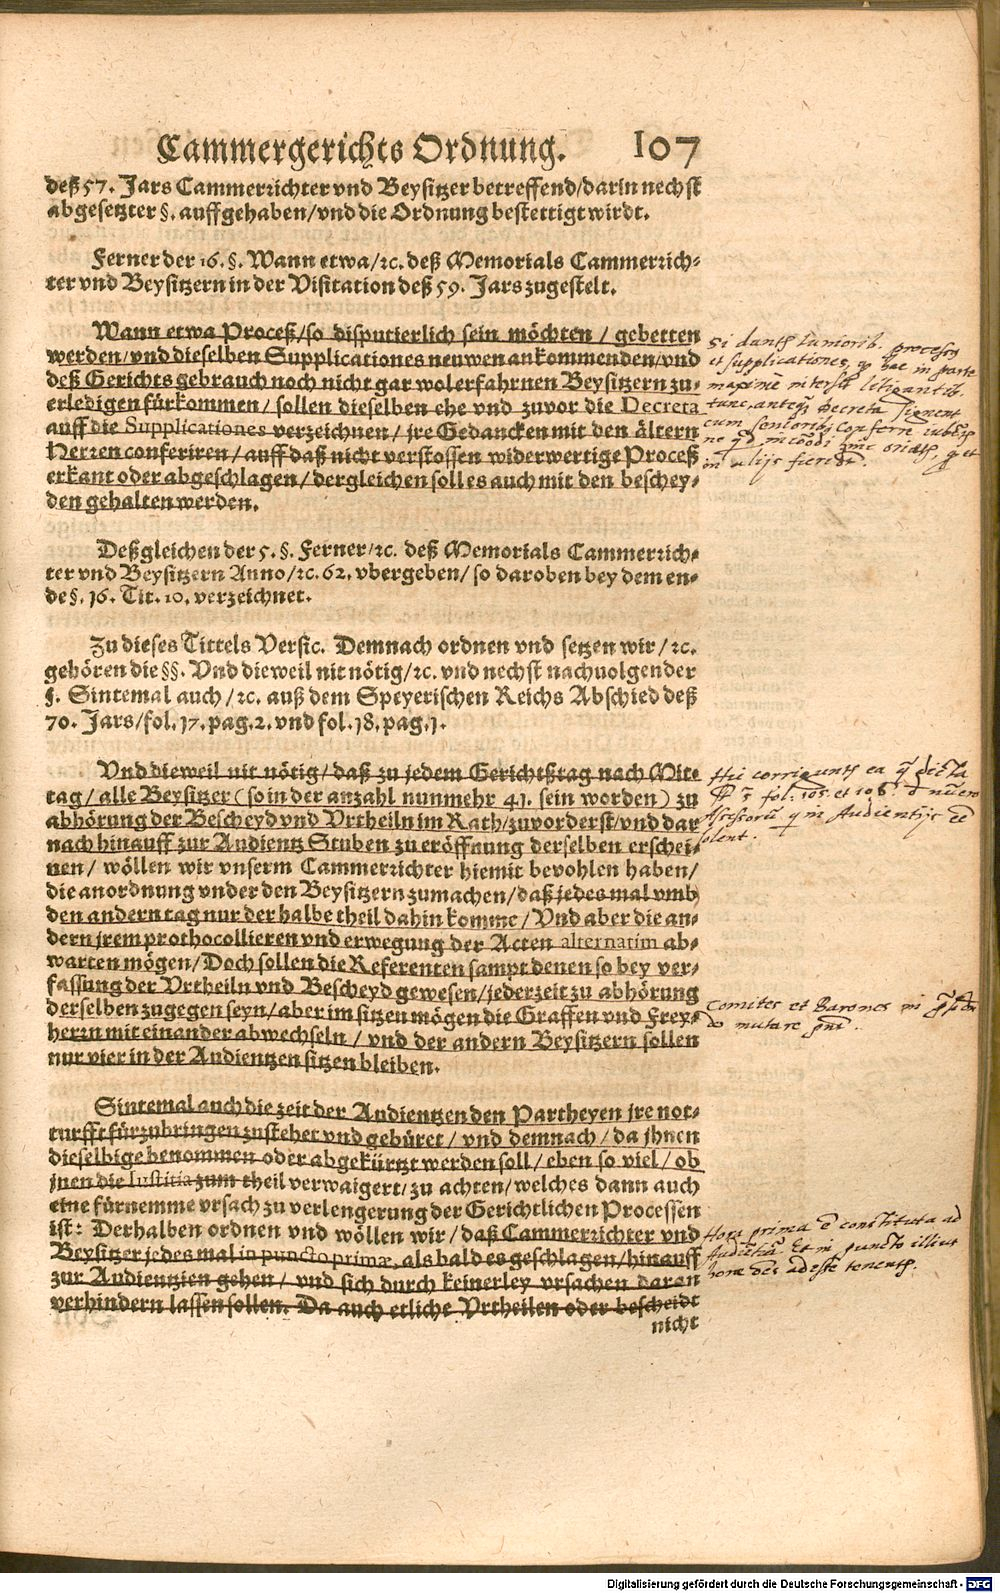 Cammergerichts Ordnung. 107
deß 57. Jars Cammerrichter vnd Beysitzer betreffend/darin nechst
abgesetzter §. auffgehaben/vnd die Ordnung bestettigt wirdt.
Ferner der 16. §. Wann etwa/ꝛc. deß Memorials Cammerrich-
ter vnd Beysitzern in der Visitation deß 59. Jars zugestelt.
Wann etwa Proceß/so disputierlich sein möchten / gebetten
werden/vnd dieselben Supplicationes neuwen ankommenden/vnd
deß Gerichts gebrauch noch nicht gar wol erfahrnen Beysitzern zu-
erledigen fürkommen/ sollen dieselben ehe vnd zuvor die Decreta
auff die Supplicationes verzeichnen/ jre Gedancken mit den ältern
Herren conferiren/auff daß nicht verstossen widerwertige Proceß
erkant oder abgeschlagen/dergleichen soll es auch mit den beschey-
den gehalten werden.
Si dantur Iunioribus processus
et supplicationes, in parte
maxime intersit litigantib.
tunc, antequam decreta signent
cum senioribus conferre
in alijs fieri
Deßgleichen der 5. §. Ferner/ꝛc. deß Memorials Cammerrich-
ter vnd Beysitzern Anno/ꝛc. 62. vbergeben/ so daroben bey dem en-
de §. 16. Tit. 10. verzeichnet.
Zu dieses Tittels Versic. Demnach ordnen vnd setzen wir/ꝛc.
gehören die §§. Vnd dieweil nit nötig/ꝛc. vnd nechst nachuolgender
§. Sintemal auch/ꝛc. auß dem Speyerischen Reichs Abschied deß
70. Jars/fol. 17. pag. 2. vnd fol. 18. pag. 1.
Vnd dieweil nit nötig/daß zu jedem Gerichtßtag nach Mit-
tag/alle Beysitzer (so in der anzahl nunmehr 41. sein worden) zu
abhörung der Bescheyd vnd Vrtheiln im Rath/zuvorderst/vnd dar
nach hinauff zur Audientz Stuben zu eröffnung derselben erschei-
nen/ wöllen wir vnserm Cammerrichter hiemit bevohlen haben/
die anordnung vnder den Beysitzern zumachen/daß jedes mal vmb
den andern tag nur der halbe theil dahin komme/Vnd aber die an-
dern jrem prothocollieren vnd erwegung der Acten alternatim ab-
warten mögen/Doch sollen die Referenten sampt denen so bey ver-
fassung der Vrtheiln vnd Bescheyd gewesen/jederzeit zu abhörung
derselben zugegen seyn/aber im sitzen mögen die Graffen vnd Frey-
herrn mit einander abwechseln/ vnd der andern Beysitzern sollen
nur vier in der Audientzen sitzen bleiben.
Hic corriguntur ea quae dicta
fol. 105. et 106. de numero
Assessorum qui in Audientijs
solent.
Comites et Barones in
mutare
Sintemal auch die zeit der Audientzen den Partheyen jre not-
turfft fürzubringen zustehet vnd gebüret/ vnd demnach/da jhnen
dieselbige benommen oder abgekürtzt werden soll/eben so viel/ob
jnen die Iustitia zum theil verwaigert/zu achten/welches dann auch
eine fürnemme vrsach zu verlengerung der Gerichtlichen Processen
ist: Derhalben ordnen vnd wöllen wir/daß Cammerrichter vnd
Beysitzer jedes mal in puncto primæ, als bald es geschlagen/hinauff
zur Audientzien gehen/ vnd sich durch keinerley vrsachen daran
verhindern lassen sollen. Da auch etliche Vrtheilen oder bescheidt
nicht
Hora prima est constituta ad
Audientiam. Et in puncto illius
horae adesse tenentur.
Digitalisierung gefördert durch die Deutsche Forschungsgemeinschaft - DFG